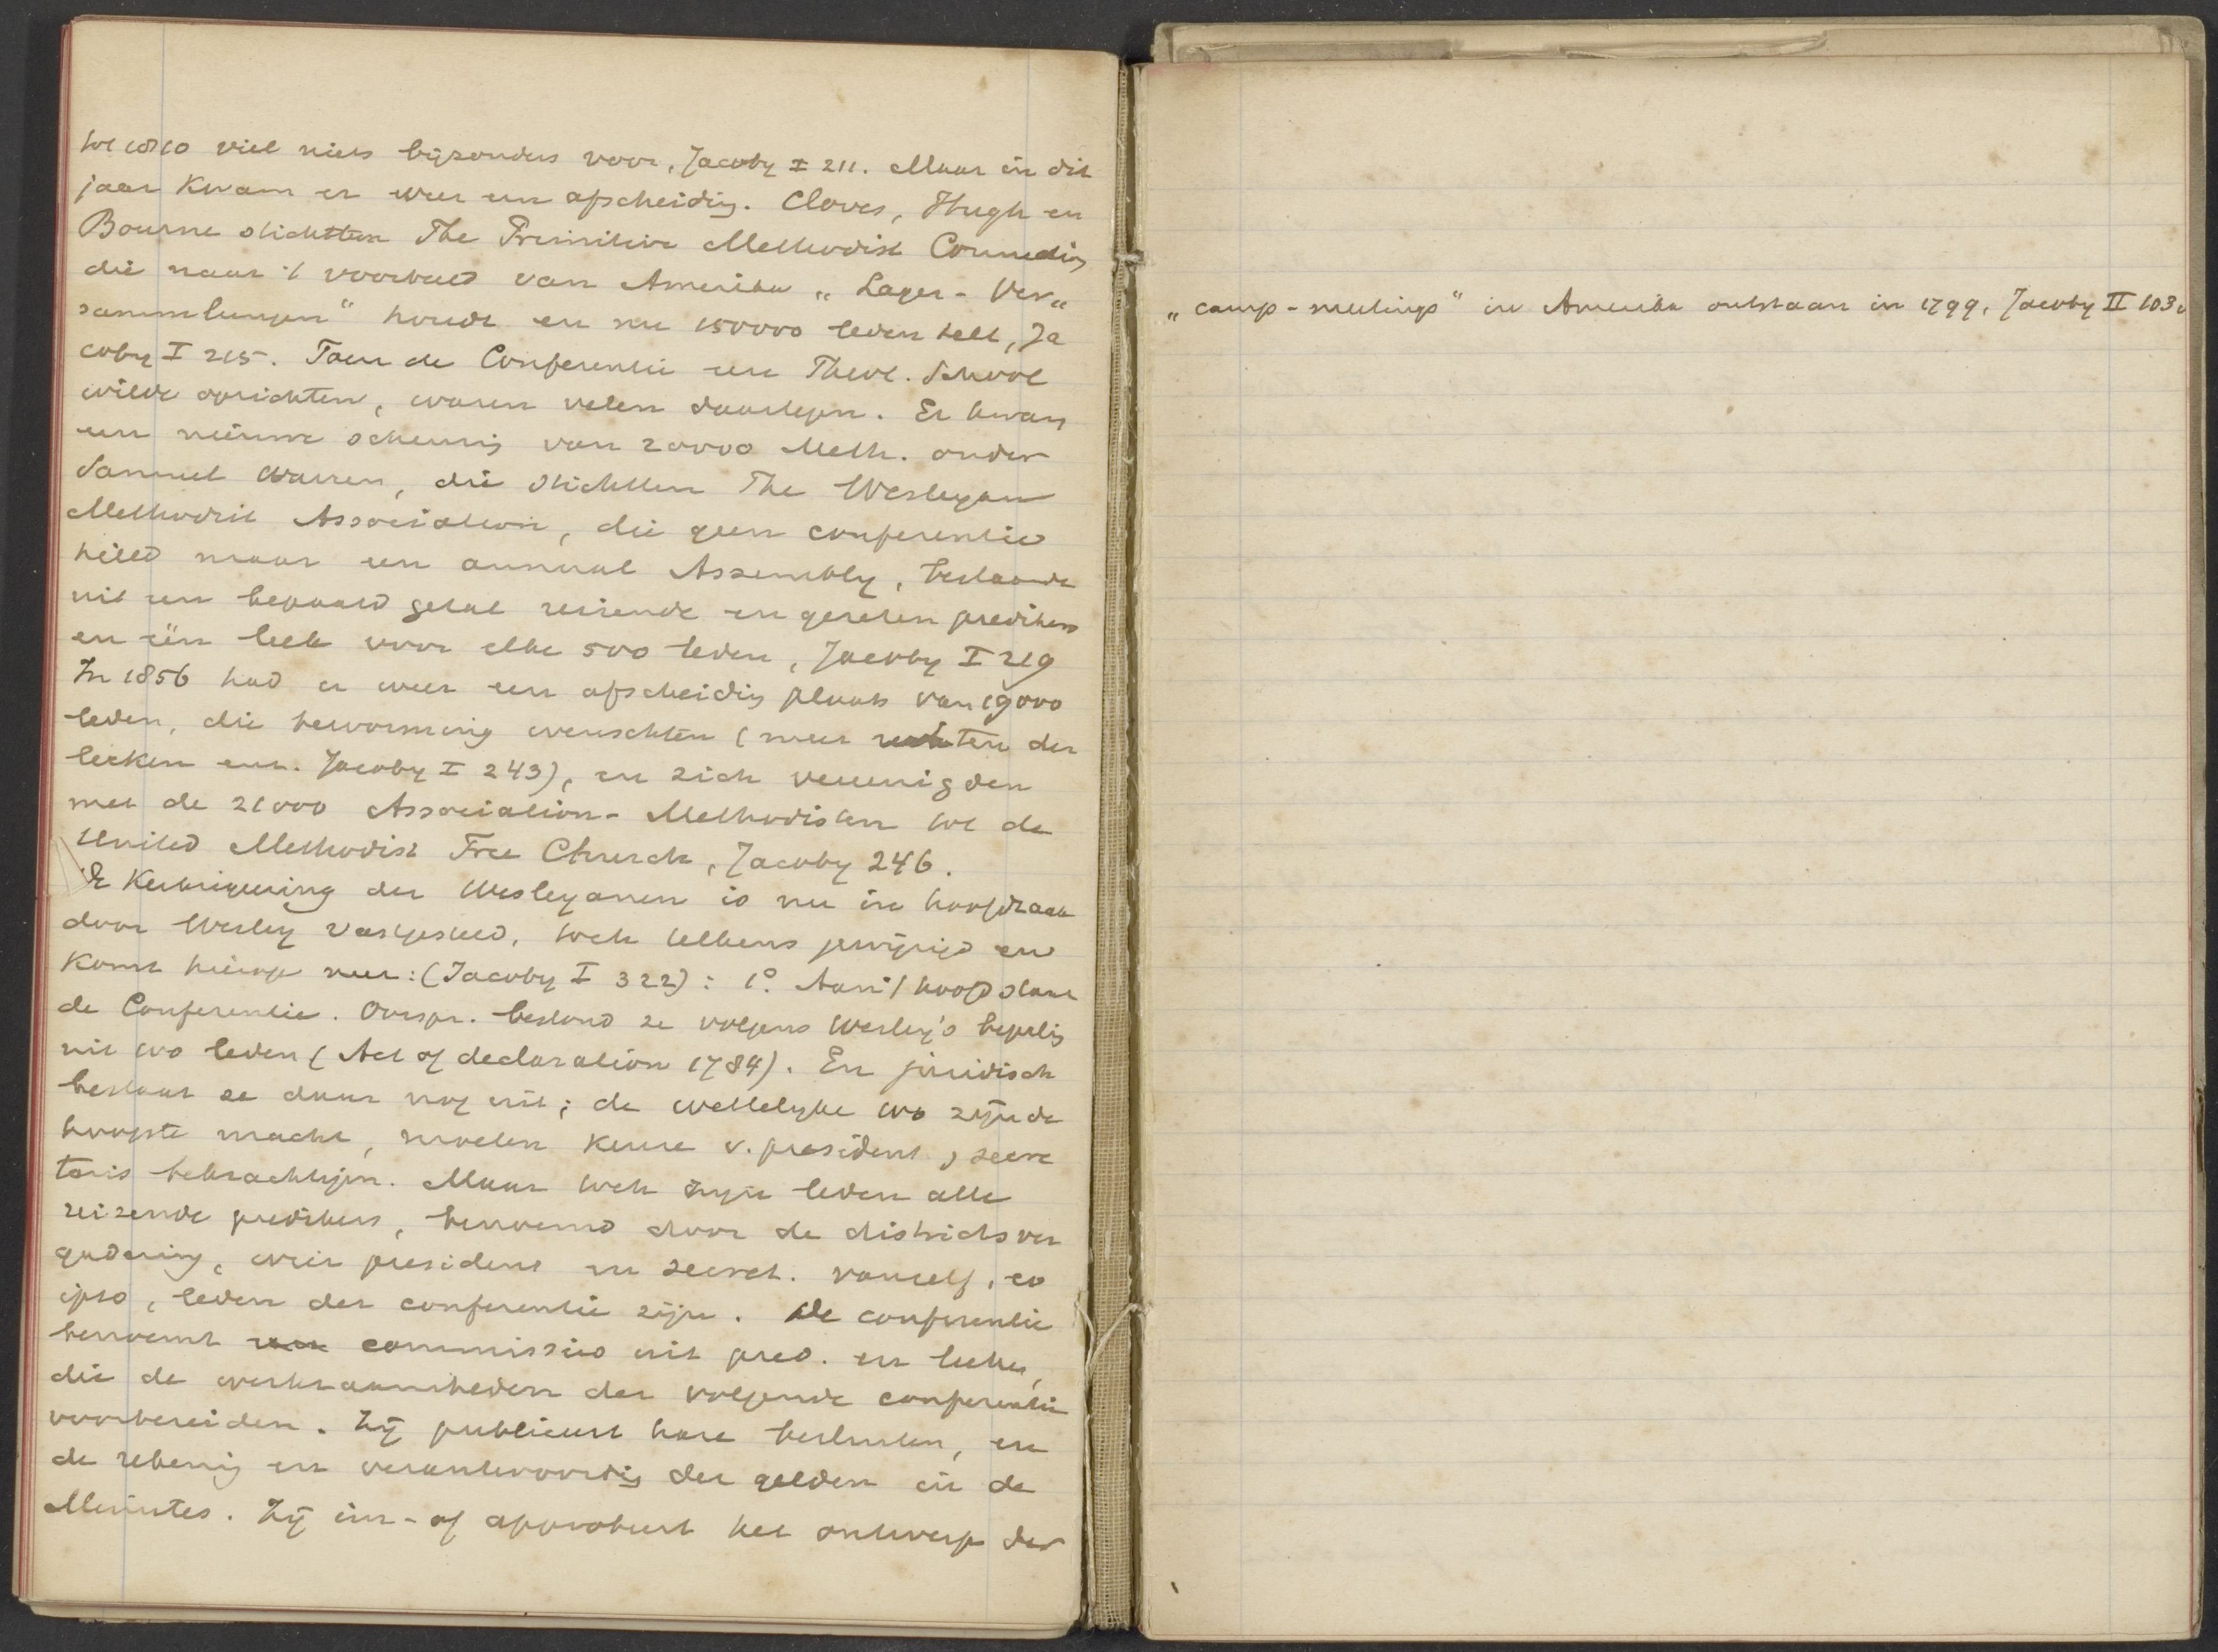 tot 1810 viel niets bijzonders voor, Jacoby I 211. Maar in dit
jaar kwam er weer een afscheiding. Clowes, Hugh en
Bourne stichtten The Primitive Methodist Connection
die naar 't voorbeeld van Amerika „Lager-Ver„
sammlungen" houdt en nu 150000 leden telt, Ja
coby I 215. Toen de Conferentie een Theol. School
wilde oprichten, waren velen daartegen. Er kwam
een nieuwe scheuring van 20000 Meth. onder
Samuel Warren, die stichtten The Wesleyan
Methodist Association, die geen conferentie
hield maar een annual Assembly, bestaande
uit een bepaald getal reizende en gezeten predikers
en één leek voor elke 500 leden, Jacoby I 219
In 1856 had er weer een afscheiding plaats van 19000
leden, die hervorming wenschten (meer rechten der
leeken enz. Jacoby I 243), en zich vereenigden
met de 21000 Association-Methodisten tot de
United Methodist Free Church, Jacoby 246.
De Kerkregeering der Wesleyanen is nu in hoofdzaak
door Wesley vastgesteld, toch telkens gewijzigd en
komt hierop neer: (Jacoby I 322): 1° Aan 't hoofd staat
de Conferentie. Oorspr. bestond ze volgens Wesley's bepaling
uit 100 leden (Act of declaration 1784). En juridisch
bestaat ze daar nog uit; de wettelijke 100 zijn de
hoogste macht, moeten keuze v. president, secre
taris bekrachtigen. Maar toch zijn leden alle
reizende predikers, benoemd door de districtsver
gadering, wier president en secret. vanzelf, eo
ipso, leden der conferentie zijn. De conferentie
benoemt een commissie uit pred. en leeken,
die de werkzaamheden der volgende conferentie
voorbereiden. Zij publiceert hare besluiten, en
de rekening en verantwoording der gelden in de
Minutes. Zij im- of approbeert het ontwerp der
„camp-meetings" in Amerika ontstaan in 1799, Jacoby II 103.